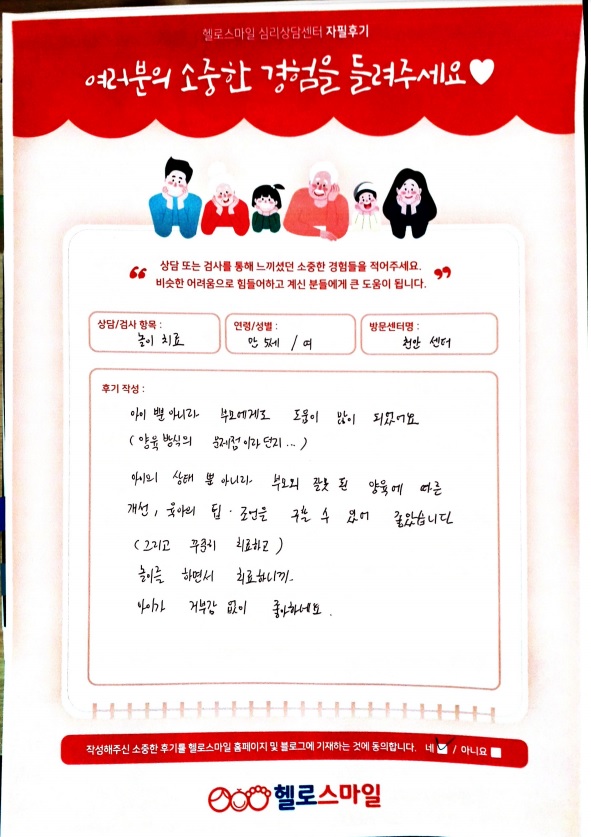 헬로스마일 심리상담센터 자필후기
여러분의 소중한 경험을 들려주세요
“ 상담 또는 검사를 통해 느끼셨던 소중한 경험들을 적어주세요. ”
비슷한 어려움으로 힘들어하고 계신 분들에게 큰 도움이 됩니다.
상담/검사 항목 : 놀이 치료
연령/성별 : 만 5세 / 여
방문센터명 : 천안 센터
후기 작성 :
아이 뿐 아니라 부모에게도 도움이 많이 되었어요
( 양육 방식의 문제점이라던지... )
아이의 상태 뿐 아니라 부모의 잘못 된 양육에 따른
개선, 육아의 팁 · 조언을 구할 수 있어 좋았습니다
( 그리고 꾸준히 치료하고 )
놀이를 하면서 치료하니까.
아이가 거부감 없이 좋아하네요.
작성해주신 소중한 후기를 헬로스마일 홈페이지 및 블로그에 기재하는 것에 동의합니다. 네 / 아니요
헬로스마일